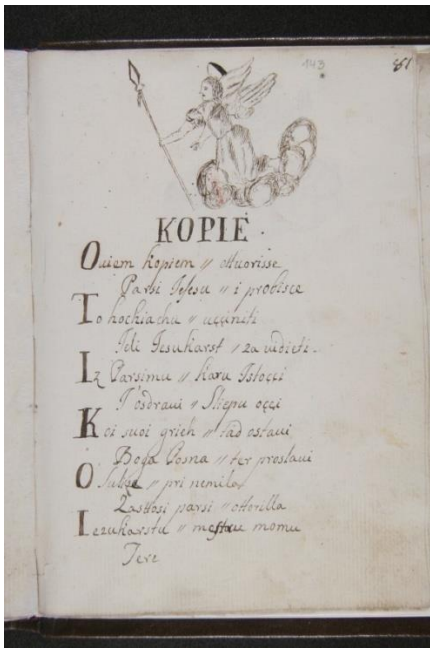 143
KOPIE
Ouiem kopiem // ottuorisse
Parsi Jesu // i probisce
To hochiachu // ucciniti
Jeli Jesukarst // za uidieti
Iz Parsimu // karu Istocci
T'osdraui // Sliepu occi
Koi suoi grieh // tad ostaui
Boga Posna // ter proslaui
O Sulize // pri nemila
Zasttosi parsi // ottorilla
Iezukarstu // momu
Terz